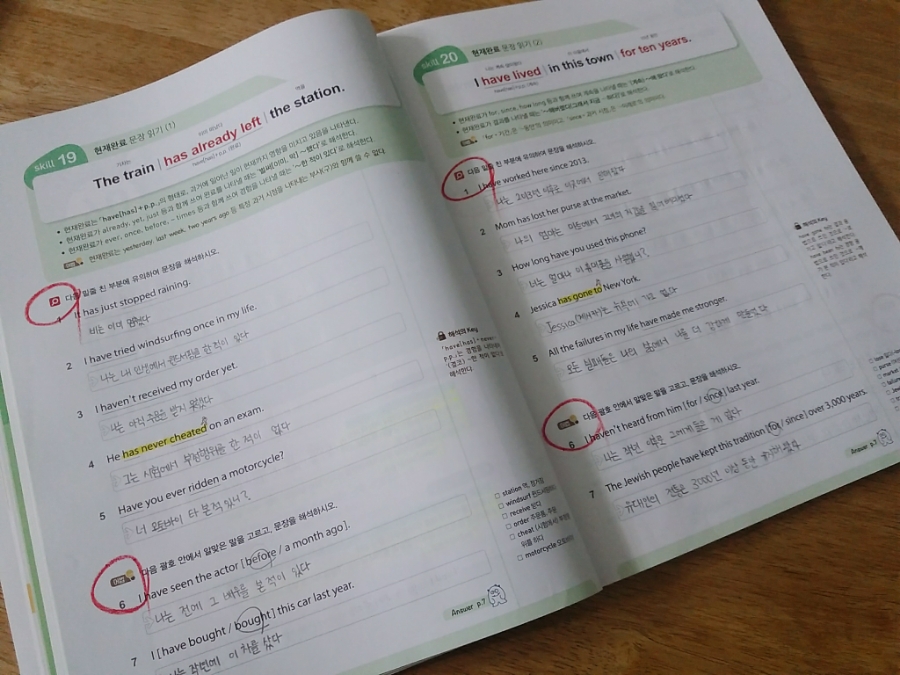 skill 19
현재완료 문장 읽기 (1)
The train has already left the station.
• 현재완료는 「have[has]+p.p.」의 형태로, 과거에 일어난 일이 현재까지 영향을 미치고 있음을 나타낸다.
• 현재완료가 already, yet, just 등과 함께 쓰여 완료를 나타낼 때는 '벌써[이미, 막] ~했다'로 해석한다.
• 현재완료가 ever, once, before, ~ times 등과 함께 쓰여 경험을 나타낼 때는 '~한 적이 있다'로 해석한다.
어법 현재완료는 yesterday, last week, two years ago 등 특정 과거 시점을 나타내는 부사(구)와 함께 쓸 수 없다.
다음 밑줄 친 부분에 유의하여 문장을 해석하시오.
1 It has just stopped raining.
비는 이미 멈췄다
2 I have tried windsurfing once in my life.
나는 내 인생에서 윈드서핑을 한 적이 있다
3 I haven't received my order yet.
나는 아직 주문을 받지 못했다
4 He has never cheated on an exam.
그는 시험에서 부정행위를 한 적이 없다
5 Have you ever ridden a motorcycle?
너 오토바이 타 본 적 있니?
어법 다음 괄호 안에서 알맞은 말을 고르고, 문장을 해석하시오.
6 I have seen the actor [before / a month ago].
나는 전에 그 배우를 본 적이 있다
7 I [have bought / bought] this car last year.
나는 작년에 이 차를 샀다
해석의 Key
station 역, 정거장
receive 받다
order 주문품, 주문
motorcycle 오토바이
Answer p.7
skill 20
현재완료 문장 읽기 (2)
I have lived in this town for ten years.
다음 밑줄 친 부분에 유의하여 문장을 해석하시오.
1 I have worked here since 2013.
2 Mom has lost her purse at the market.
3 How long have you used this phone?
너는 얼마나 이 휴대폰을 사용했니?
4 Jessica has gone to New York.
Jessica(제시카)는 뉴욕에 가고 없다
5 All the failures in my life have made me stronger.
모든 실패들은 나의 삶에서 나를 더 강하게 만들었다
어법 다음 괄호 안에서 알맞은 말을 고르고, 문장을 해석하시오.
6 I haven't heard from him [for / since] last year.
7 The Jewish people have kept this tradition [for / since] over 3,000 years.
해석의 Key
Answer p.7